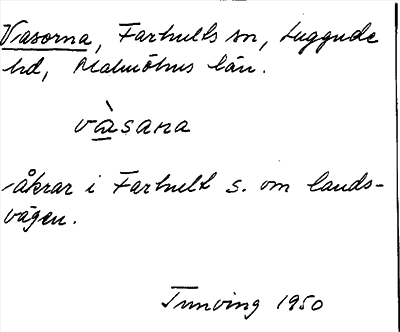 Vasorna, Farhults sn, Luggude
hd, Malmöhus län.
vàsana
åkrar i Farhult s. om lands-
vägen.
Tunving 1950